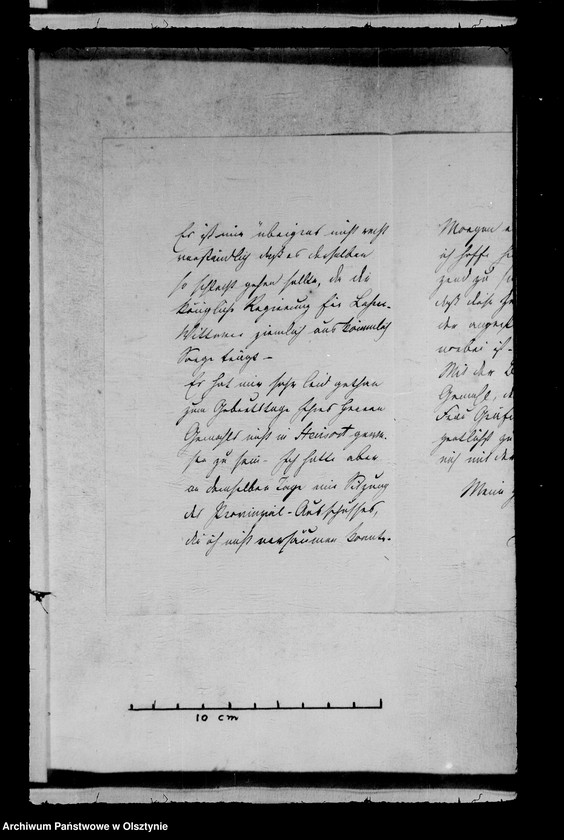 Es ist mir übrigens nicht recht
verständlich daß es derselben
so schlecht gehen sollte, da die
Königliche Regierung für Lehrer-
Wittwen ziemlich auskömmlich
Sorge trägt -
Es hat mir sehr leid gethan
zum Geburtstage Ihres Herrn
Gemahls nicht in Steinort gewe-
sen zu sein - Ich hatte aber
an demselben Tage eine Sitzung
des Provinzial-Ausschusses,
die ich nicht versäumen konnte.
Morgen
ich hoffe
gend zu
daß das
der
wobei ich
Mit der
Gemahl,
Frau Gräfin
mich mit der
Meine
10 cm
Archiwum Państwowe w Olsztynie